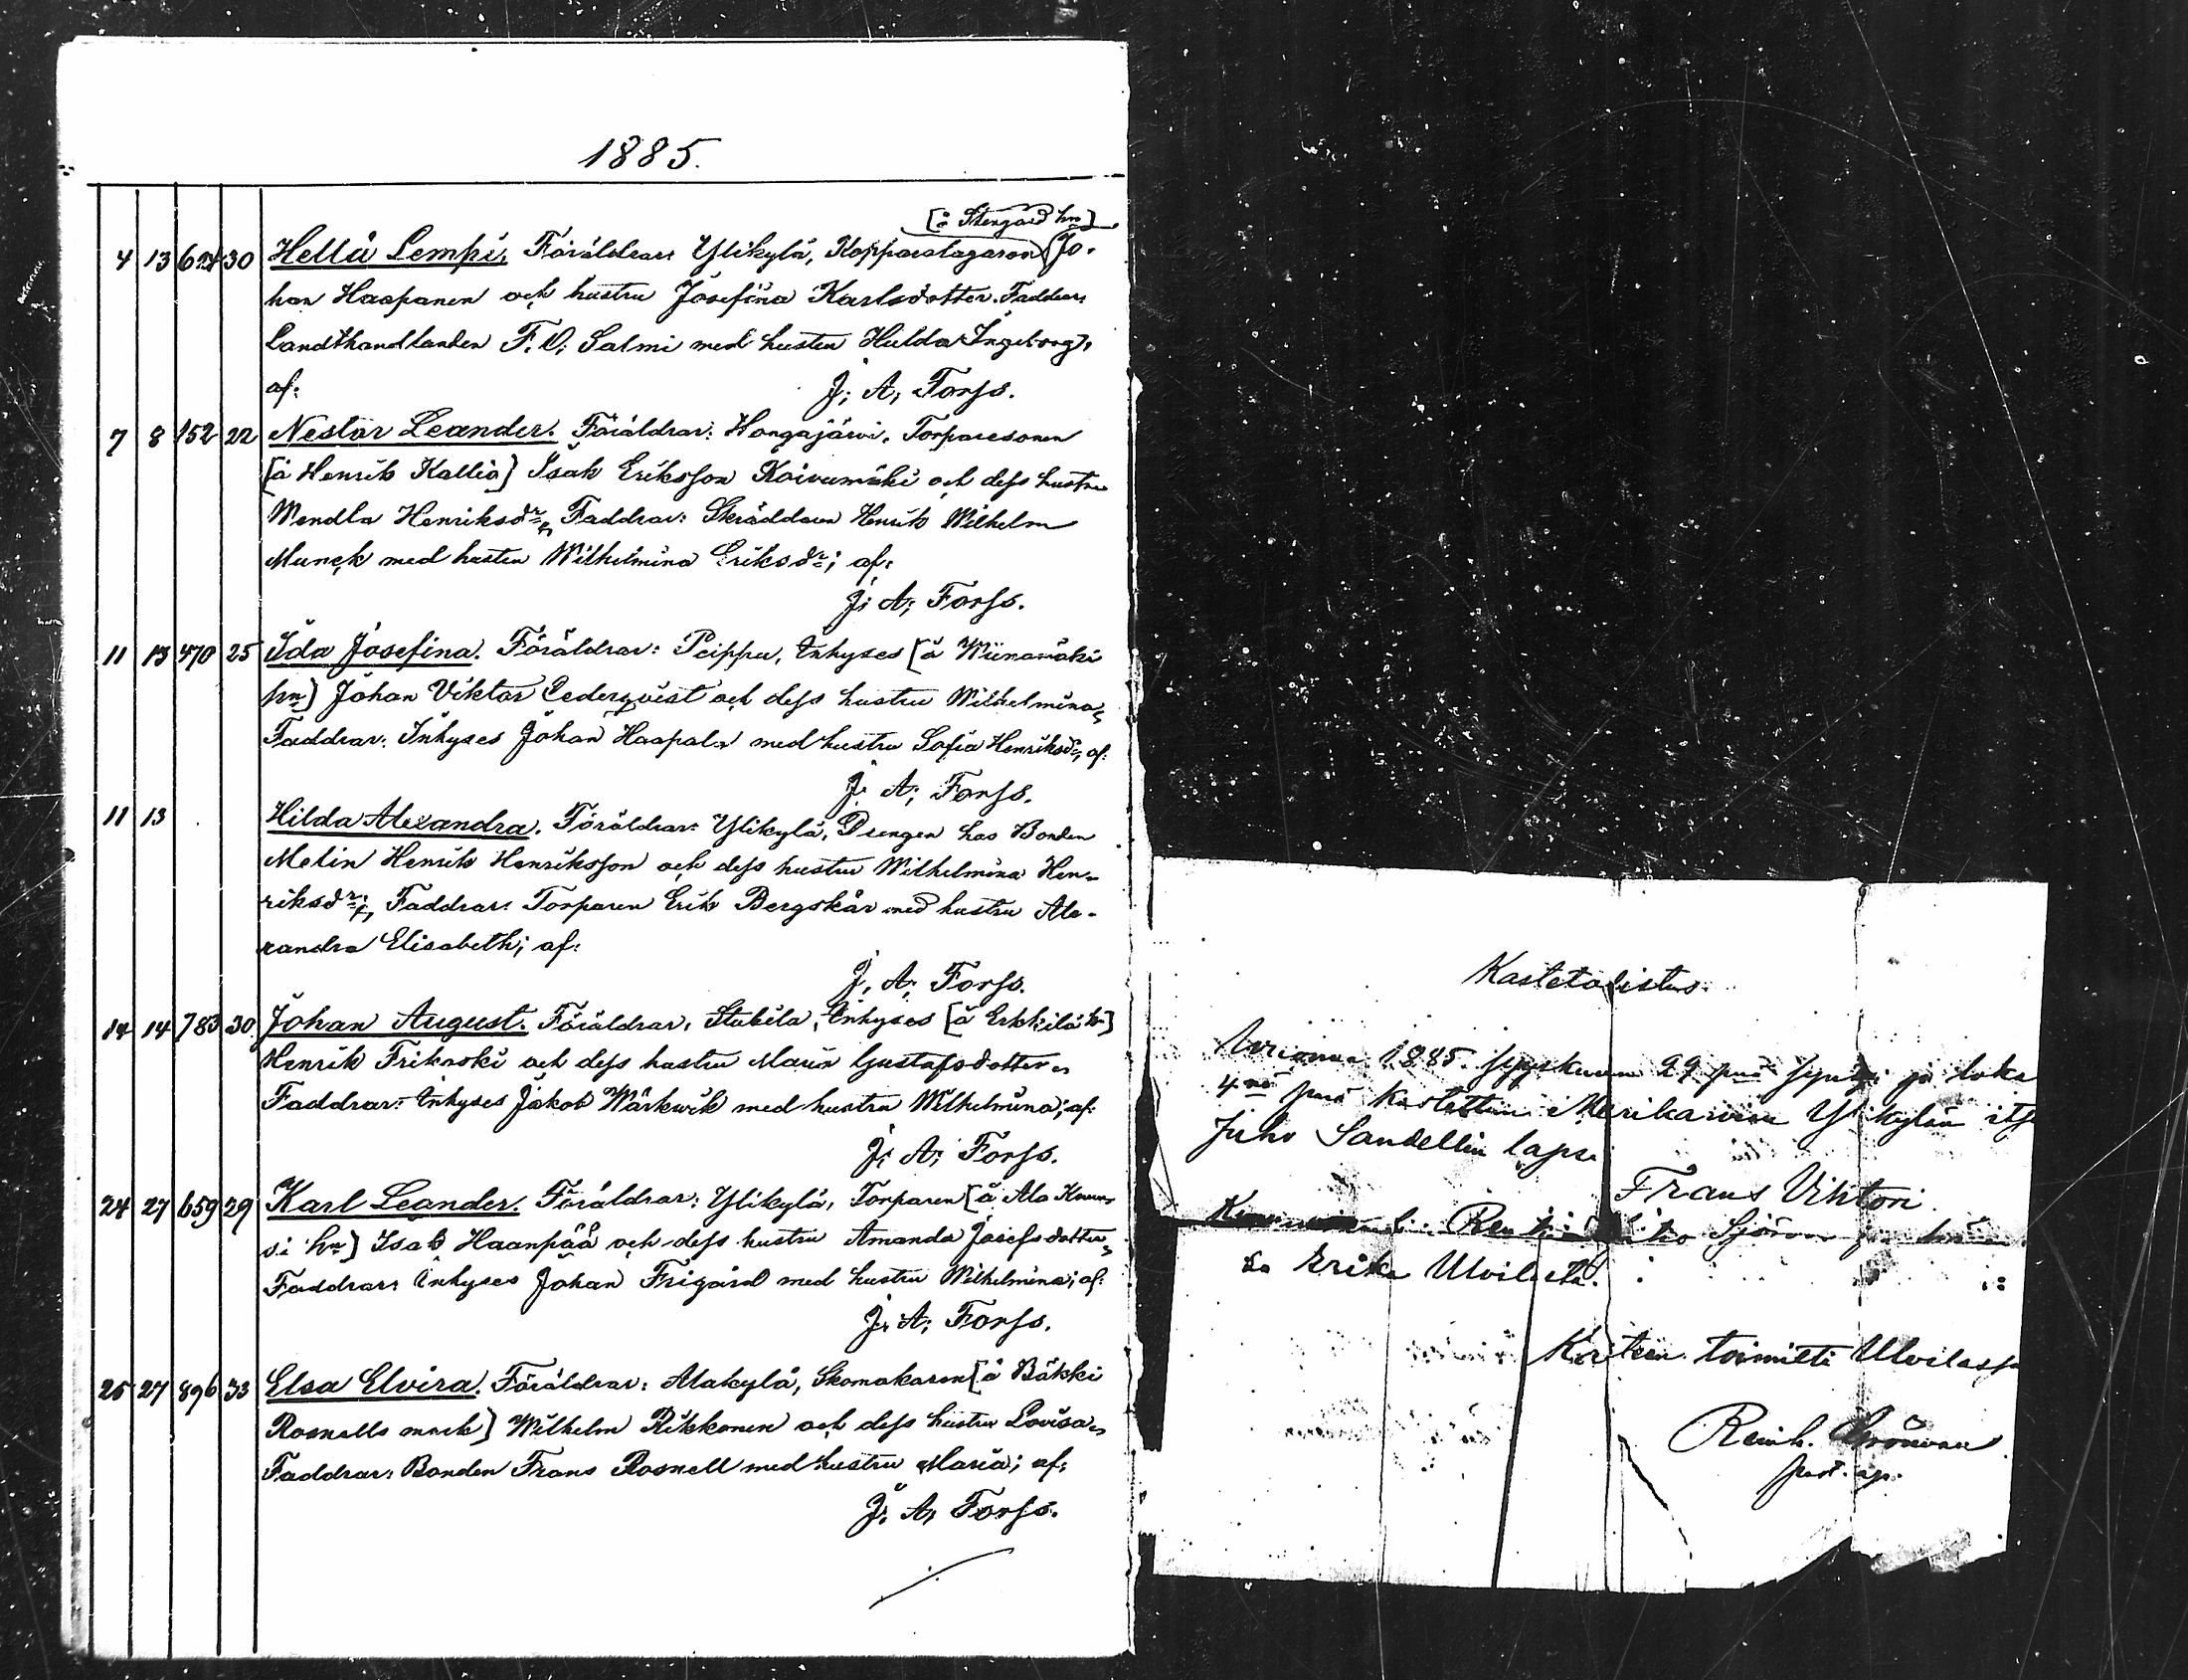 1885.
[å Stengård hn]
4 13 624 30 Hellä Lempi, Föräldrar: Ylikylä, Kopparslagaren (Jo-
han Haapanen och hustru Josefina Karlsdotter. Faddrar:
Landthandlanden F. O; Salmi med hustru Hulda Ingeborg;
af:
J; A; Forss.
7 8 152 22 Nestor Leander. Föräldrar: Hongajärvi, Torparesonen
[å Henrik Kallio] Isak Eriksson Koivumäki och dess hustru
Wendla Henriksdr, Faddrar: Skräddaren Henrik Wilhelm
Munck med hustru Wilhelmina Eriksdr; af:
J; A; Forss.
11 13 470 25 Ida Josefina. Föräldrar: Peippu, Inhyses [å Wiinamäki
hn] Johan Viktor Cederqvist och dess hustru Wilhelmina,
Faddrar: Inhyses Johan Haapala med hustru Sofia Henriksdr, af:
J; A; Forss.
11 13 Hilda Alexandra. Föräldrar: Ylikylä, Drengen hos Bonden
Melin Henrik Henriksson och dess hustru Wilhelmina Hen-
riksdr; Faddrar: Torparen Erik Bergskär med hustru Ale-
xandra Elisabeth; af:
J, A; Forss.
14 14 783 30 Johan August. Föräldrar: Stubila, Inhyses [å Erkkilä hn]
Henrik Frikaski och dess hustru Maria Gustafsdotter
Faddrar: Inhyses Jakob Wärkwik med hustru Wilhelmina; af:
J; A; Forss.
24 27 659 29 Karl Leander. Föräldrar: Ylikylä, Torparen [å Ala Knuu-
si hn] Isak Haanpää och dess hustru Amanda Josefsdotter
Faddrar: Inhyses Johan Frigård med hustru Wilhelmina; af:
J; A; Forss.
25 27 896 33 Elsa Elvira. Föräldrar: Alakylä, Skomakaren [å Bäkki
Rosnells mark] Wilhelm Rikkonen och dess hustru Lovisa
Faddrar: Bonden Frans Rosnell med hustru Maria; af:
J; A; Forss.
Kastetodistus.
Vuonna 1885 syyskuun 29 pnä syntyi ja loka
4nä pnä kastettiin Merikarvian Ylikylän itse
Juho Sandellin lapsi
Frans Vihtori.
Sjöman
Erika Ulvilasta.
Kasteen toimitti Ulvilassa
Reinh. Grönvall
past. apu.